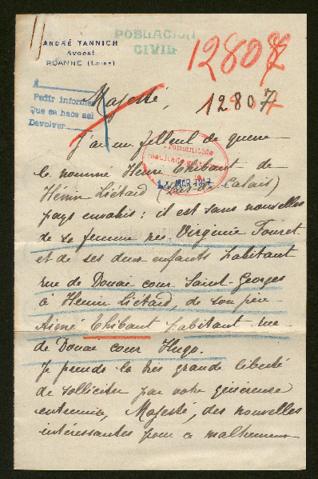 POBLACION
CIVIL
ANDRÉ YANNICH
Avocat
ROANNE (Loire)
12807
Pedir informes
Que se hace así
Devolver
Majesté,
12807
J'ai un filleul de guerre
le nommé Henri Thibaut de
Hénin Liétard (Pas-de-Calais)
pays envahi: il est sans nouvelles
de sa femme née Virginie
et de ses deux enfants habitant
rue de Douai cour Saint-Georges
à Hénin Liétard, de son père
Aimé Thibaut habitant rue
de Douai cour Hugo.
Je prends la très grande liberté
de solliciter par votre généreuse
entremise, Majesté, des nouvelles
intéressantes pour ce malheureux